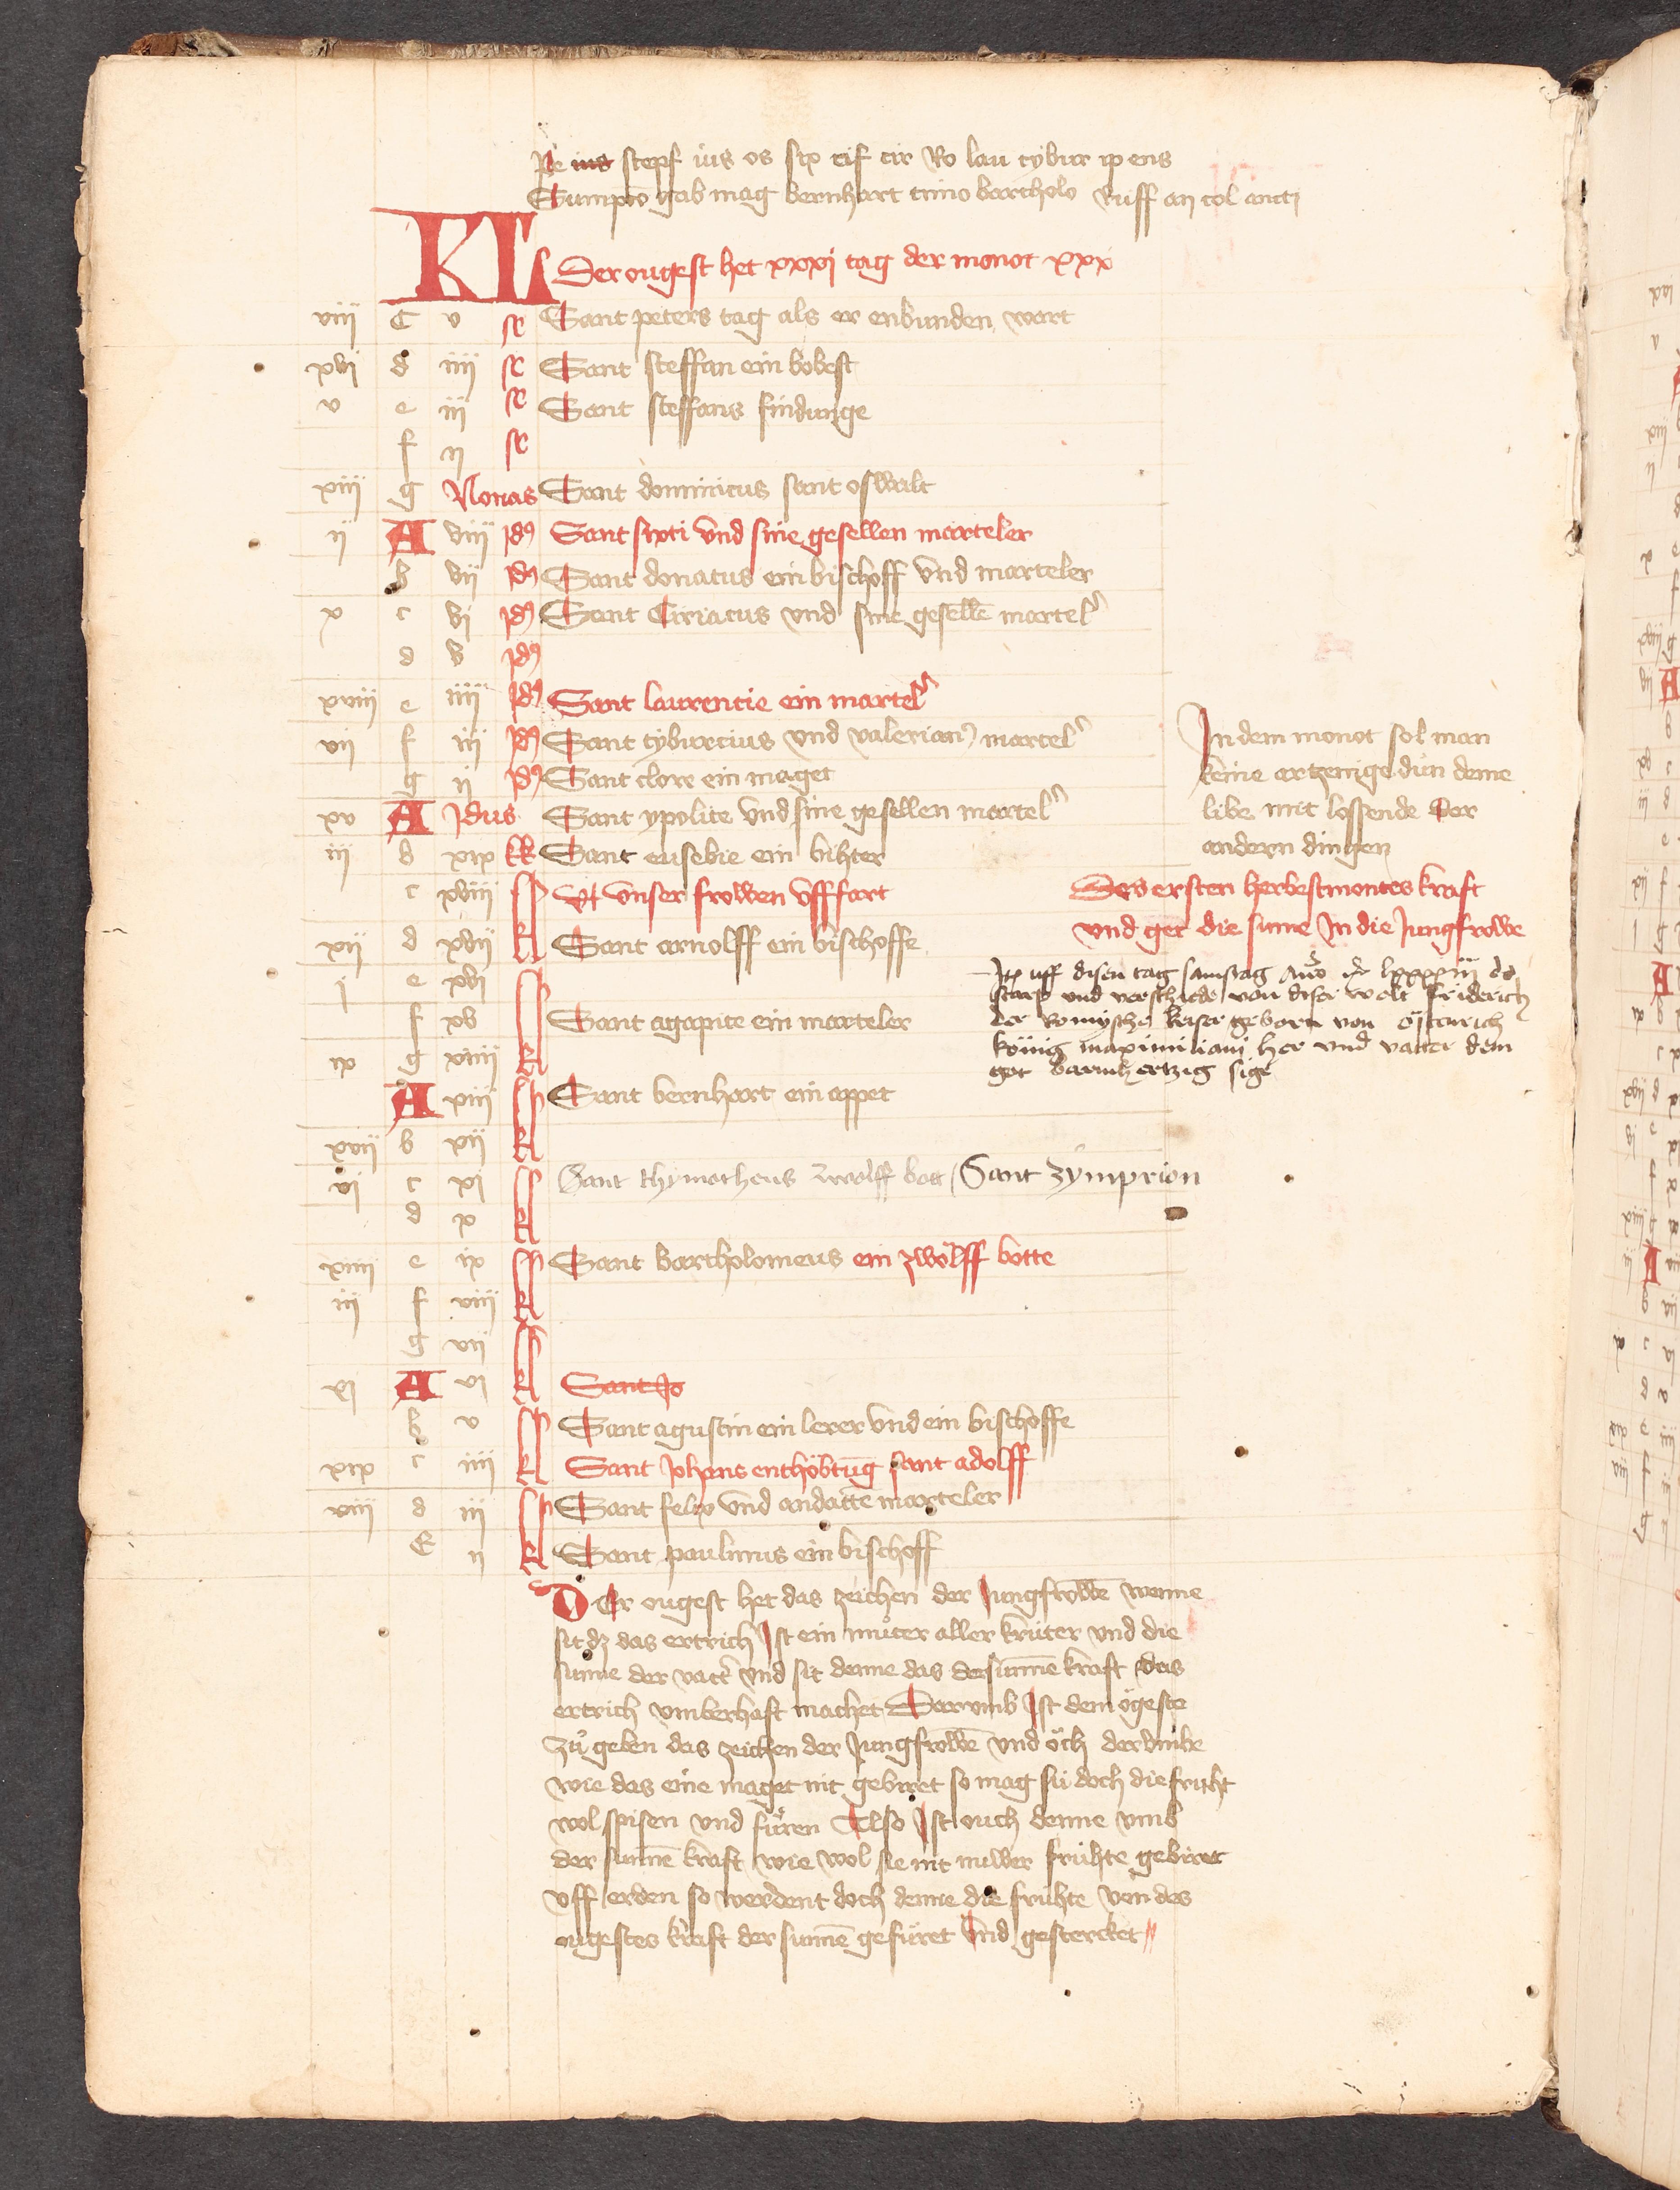 Pe ins stepf ius os six cif cir Ro lau tybur yp eus
Sumpcio gab mag bernhart timo bartholo Ruff an col aucti
KL Der ougest het xxxi tag der monot xxx
viii C v se Sant peters tag als er enbunden wart
xvi d iiii se Sant steffan ein bobest
v e iii se Sant steffans findunge
f ii se
xiii g Nonas Sant dominicus sant oswalt
ii A viii Idꝰ Sant sixti und sine gesellen marteler
b vii Idꝰ Sant donatus ein bischoff und marteler
x c vi Idꝰ Sant Ciriacus und sine gesellē martel
d v Idꝰ
xviii e iiii Idꝰ Sant laurencie ein martel
vii f iii Idꝰ Sant tyburcius und valerianꝰ martel
g ii Idꝰ Sant clore ein maget
xv A Idus Sant ypolite und sine gesellen martel
iii b xix kl Sant eusebie ein bihter
c xviii Unser frowen ufffart
xii d xvii kl Sant arnolff ein bischoffe
i e xvi
f xv Sant agapite ein marteler
ix g xiiii kl
A xiii Sant bernhart ein appet
xvii b xii kl
vi c xi Sant thymotheus zwolff bott / Sant zymprion
d x kl
xiiii e ix Sant bartholomeus ein zwölff botte
iii f viii kl
g vii
xi A vi kl Sant Jo
b v Sant agustin ein lerer und ein bischoffe
xix c iiii kl Sant Johans enthöbtūg sant adolff
viii d iii Sant felix und audacte marteler
E ii kl Sant paulinus ein bischoff
In dem monot sol man
keine artzenige dun deme
libe mit lossende der
andern dingen
Des ersten herbestmontes kraft
und get die sunne In die Jungfrowe
Itē uff disen tag samstag Anno dm̄ lxxxxiii do
starb und verschiede von diser welt friderich
der Romysche keiser geborn von österrich
künig maximiliani her und vatter dem
got barmhertzig sige
DEr ougest het das zeichen der Jungfrowē wenne
sit dz das ertrich Ist ein muͦter aller krüter und die
sunne der vatter und sit denne das der sunnē kraft das
ertrich umberhaft machet Darumb Ist dem ögeste
zuͦ geben das zeichen der Jungfrowē und öch darumbe
wie das eine maget nit gebiret so mag sü doch die fruht
wol spisen und füren Also Ist ouch denne umb
der sunnē kraft wie wol sie nit nuwer frühte gebiret
uff erden so werdent doch denne die frühte von des
ougestes kraft der sunnē gefüret und gestercket